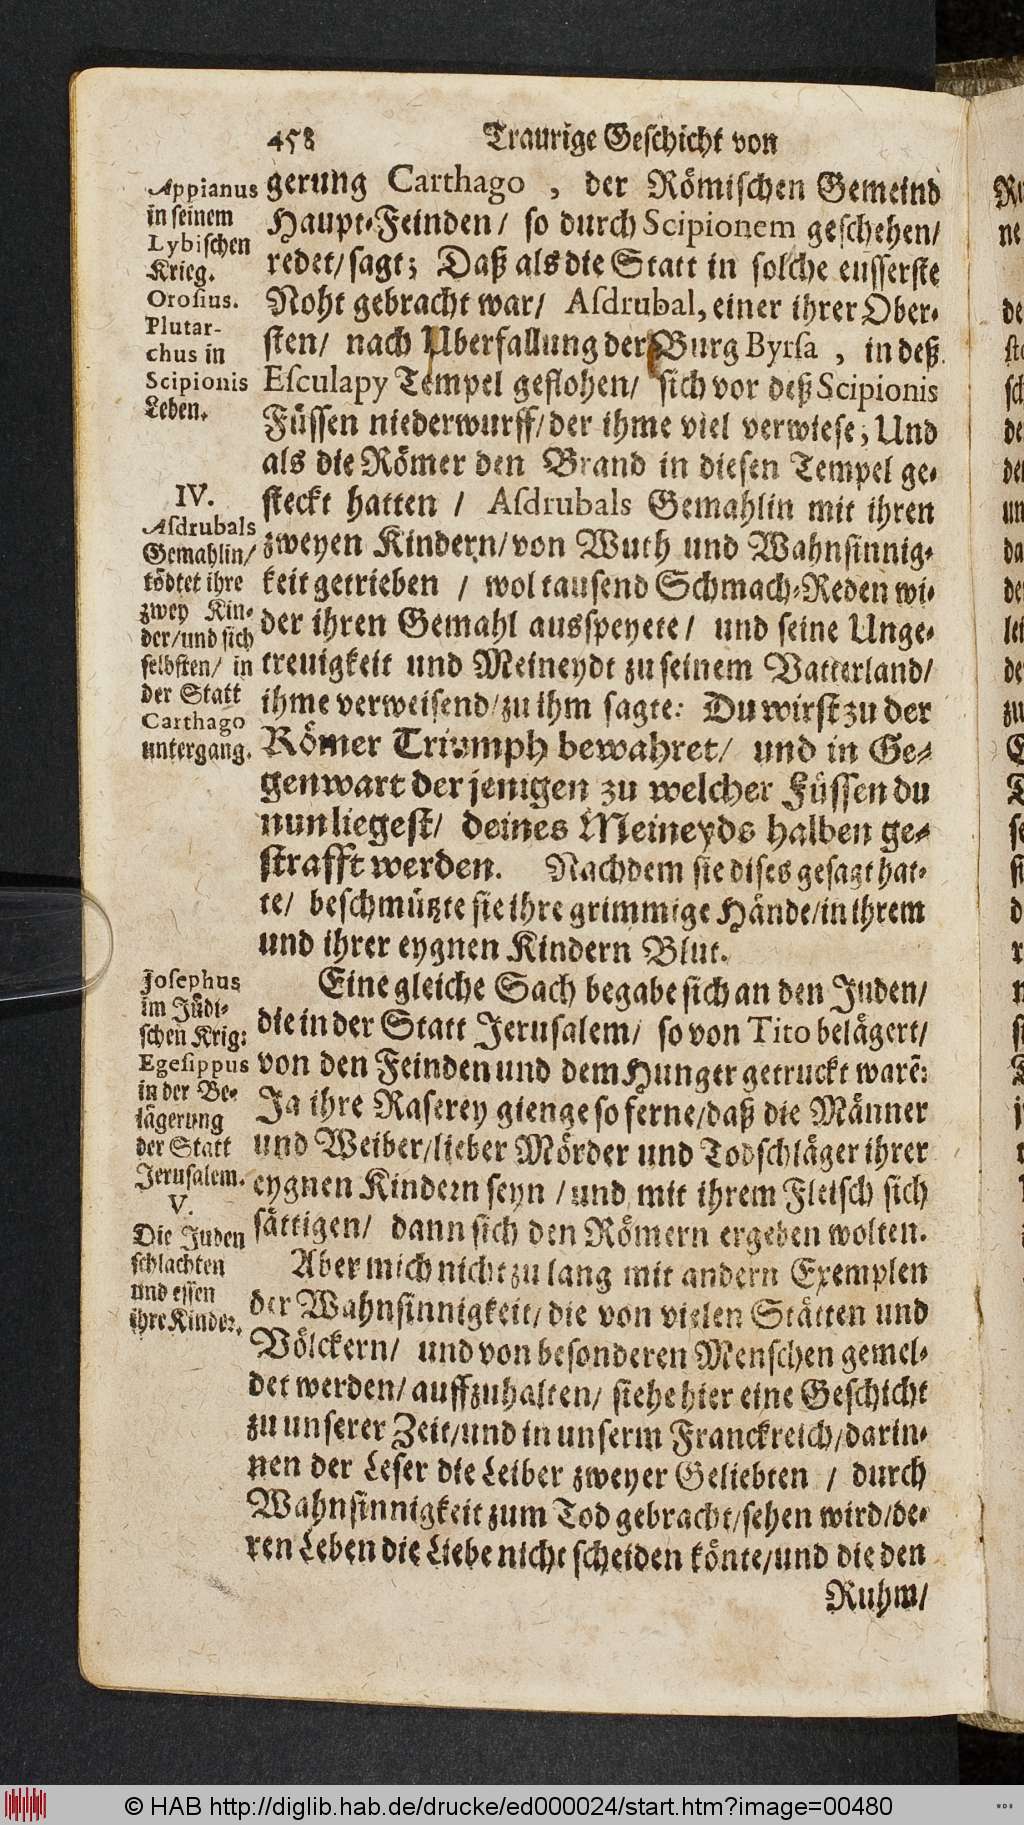 458 Traurige Geschicht von
gerung Carthago, der Römischen Gemeind
Haupt-Feinden/ so durch Scipionem geschehen/
redet/sagt; Daß als die Statt in solche eusserste
Noht gebracht war/ Asdrubal, einer ihrer Ober-
sten/ nach Uberfallung der Burg Byrsa, in deß
Esculapy Tempel geflohen/ sich vor deß Scipionis
Füssen niederwurff/der ihme viel verwiese; Und
als die Römer den Brand in diesen Tempel ge-
steckt hatten/ Asdrubals Gemahlin mit ihren
zweyen Kindern/von Wuth und Wahnsinnig-
keit getrieben/ wol tausend Schmach-Reden wi-
der ihren Gemahl ausspeyete/ und seine Unge-
treuigkeit und Meineydt zu seinem Vatterland/
ihme verweisend/zu ihm sagte: Du wirst zu der
Römer Triumph bewahret/ und in Ge-
genwart der jenigen zu welcher Füssen du
nun liegest/ deines Meineyds halben ge-
strafft werden. Nachdem sie dises gesagt hat-
te/ beschmützte sie ihre grimmige Hände/in ihrem
und ihrer eygnen Kindern Blut.
Eine gleiche Sach begabe sich an den Juden/
die in der Statt Jerusalem/ so von Tito belägert/
von den Feinden und dem Hunger getruckt warē:
Ja ihre Raserey gienge so ferne/daß die Männer
und Weiber/lieber Mörder und Todschläger ihrer
eygnen Kindern seyn/und mit ihrem Fleisch sich
sättigen/ dann sich den Römern ergeben wolten.
Aber mich nicht zu lang mit andern Exemplen
der Wahnsinnigkeit/die von vielen Stätten und
Völckern/ und von besonderen Menschen gemel-
det werden/auffzuhalten/ siehe hier eine Geschicht
zu unserer Zeit/und in unserm Franckreich/darin-
nen der Leser die Leiber zweyer Geliebten/ durch
Wahnsinnigkeit zum Tod gebracht/sehen wird/de-
ren Leben die Liebe nicht scheiden könte/und die den
Ruhm/
Appianus
in seinem
Lybischen
Krieg.
Orosius.
Plutar-
chus in
Scipionis
Leben.
IV.
Asdrubals
Gemahlin/
tödtet ihre
zwey Kin-
der/und sich
selbsten/ in
der Statt
Carthago
untergang.
Josephus
im Jüdi-
schen Krig:
Egesippus
in der Be-
lägerung
der Statt
Jerusalem.
V.
Die Juden
schlachten
und essen
ihre Kinder.
© HAB http://diglib.hab.de/drucke/ed000024/start.htm?image=00480